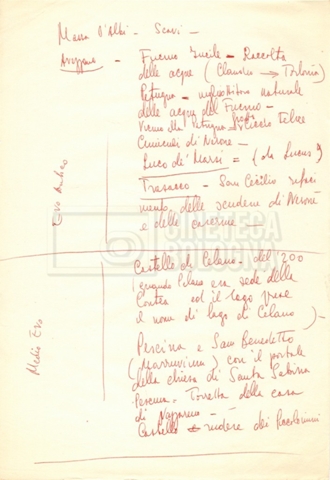 Massa D'Albe - Scavi -
Avezzano - Fucino Incile - Raccolta
delle acque (Claudio → Torlonia)
Petogna - inghiottitoio naturale
delle acque del Fucino -
Vicino alla Petogna
Cunicoli di Nerone -
Luco de' Marsi = (da Lucus)
Trasacco - San Cecilio rifaci
mento delle scuderie di Nerone
e delle caserme -
Evo Antico
CINETECA
Castello di Celano - del '200
(quando Celano era sede della
Contea ed il lago prese
il nome di lago di Celano)
Medio Evo
Pescina e San Benedetto
(Marruvium) con il portale
della chiesa di Santa Sabina
Pescina - Torretta della casa
di Mazzarino -
Castello e rudere dei Piccolomini